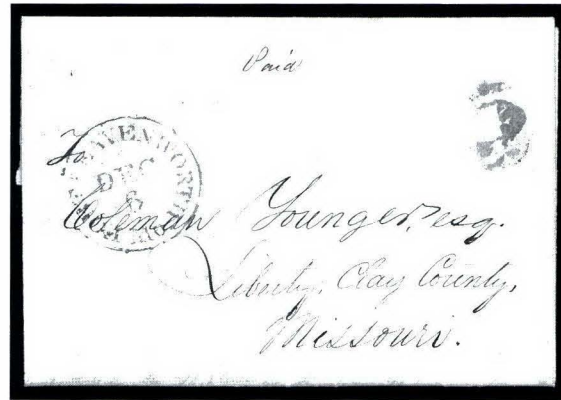 Paid
5
LEAVENWORTH
DEC
6
To
Coleman Younger, esq.
Liberty, Clay County,
Missouri.